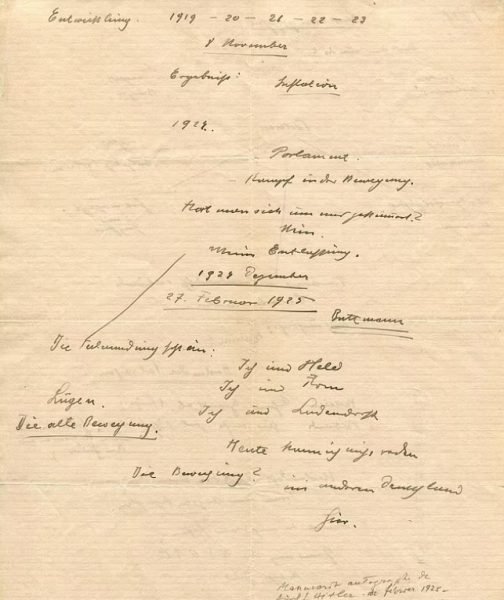 Entwicklung. 1919 – 20 – 21 – 22 – 23
8 November
Ergebniß: Inflation
1924.
Parlament.
Kampf in der Bewegung.
Hat man sich um mich gekümmert?
Nein.
Meine Entlassung.
1924 Dezember
27. Februar 1925
Buttmann
Die
Ich und Held
Ich und
Lügen.
Ich und Ludendorff
Die alte Bewegung.
Heute kann ich nicht reden
Die Bewegung? im anderen Deutschland
hier.
Manuscrit autographe de
Hitler de février 1925